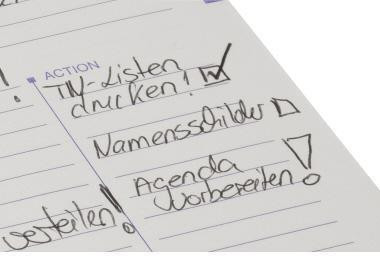 ACTION
TN-Listen
drucken!
Namensschilder
Agenda
vorbereiten!
verteilen!